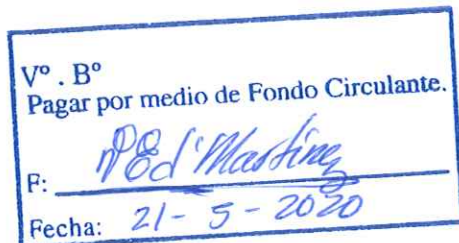 Vº . Bº
Pagar por medio de Fondo Circulante.
F:
Fecha: 21 - 5 - 2020